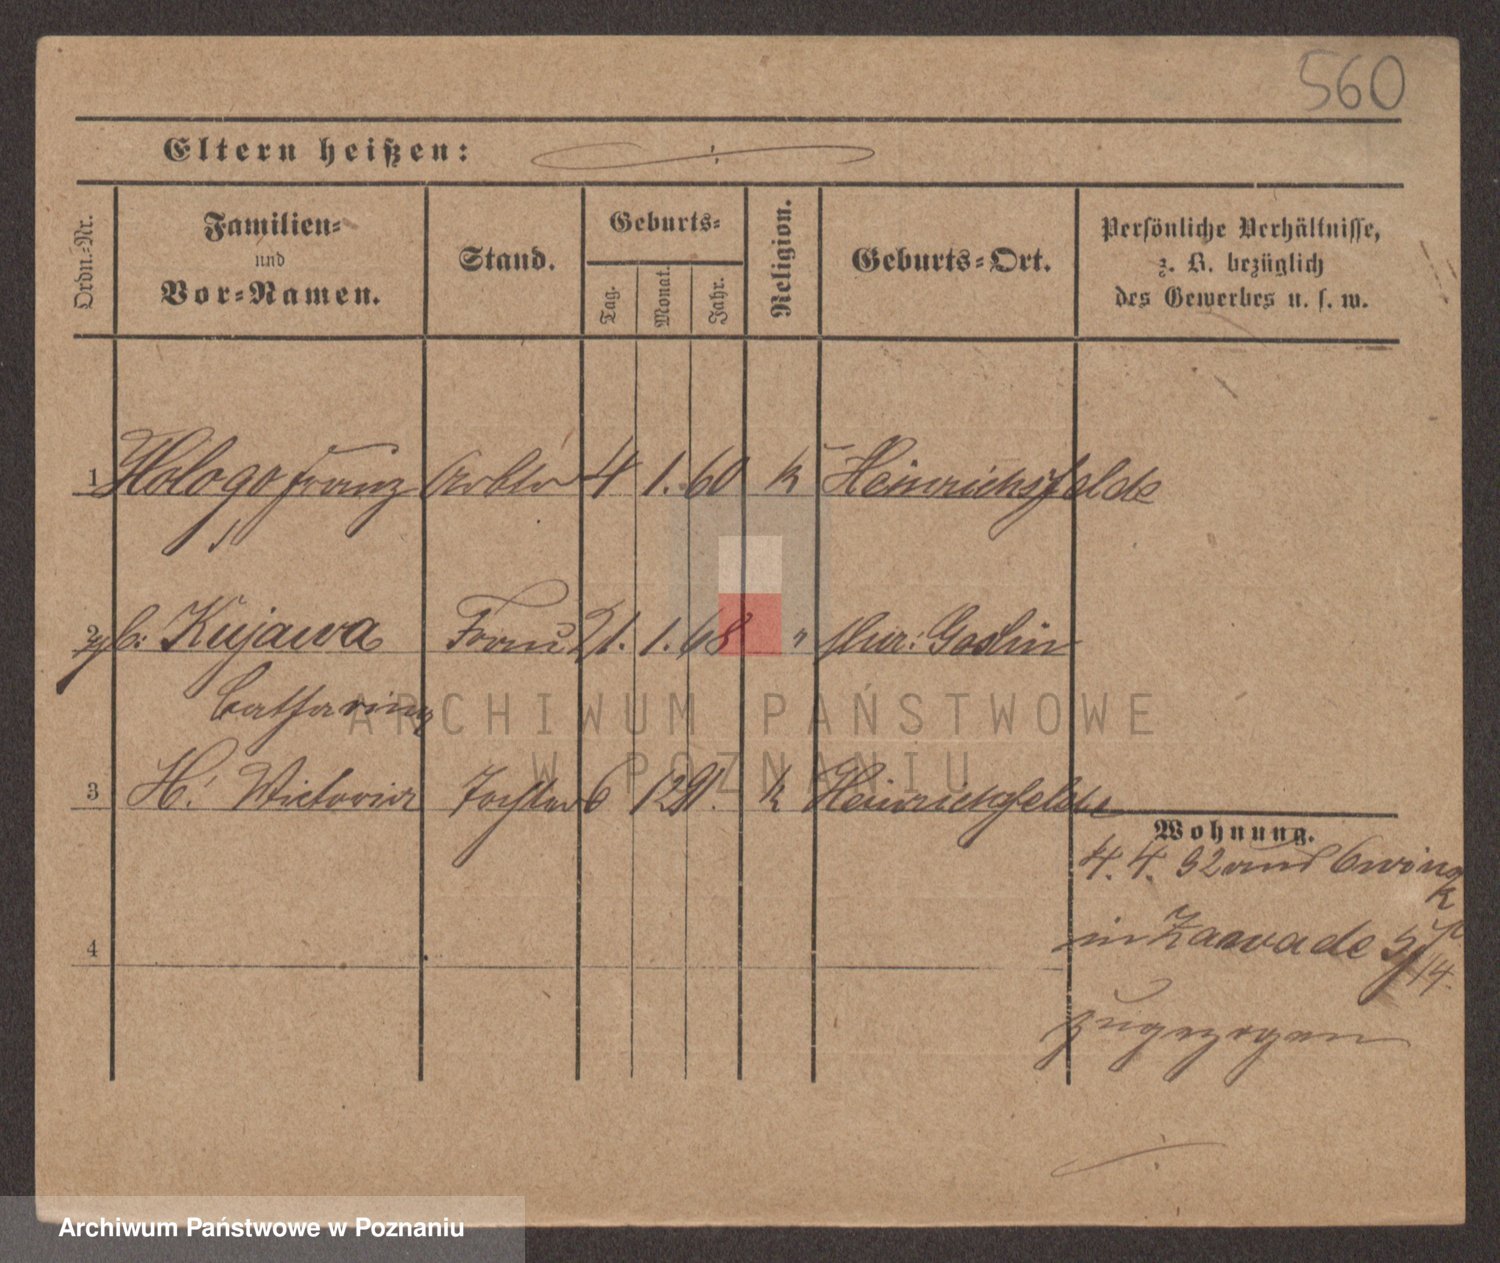 560
Eltern heißen:
Ordn.-Nr.
Familien-
und
Vor-Namen.
Stand.
Geburts-
Tag.
Monat.
Jahr.
Religion.
Geburts-Ort.
Persönliche Verhältnisse,
z. B. bezüglich
des Gewerbes u. s. w.
1 Hologo Franz Arbtr 4 1. 60 K Heinrichsfelde
2 gb: Kujawa Frau 21. 1. 68 " Mur: Goslin
Catharina
3 H. Victoria Tochter 6 12 91. K Heinrichsfelde
Wohnung.
4. 4. 92 aus
in Zawade
4
zugezogen
ARCHIWUM PAŃSTWOWE
W POZNANIU
Archiwum Państwowe w Poznaniu